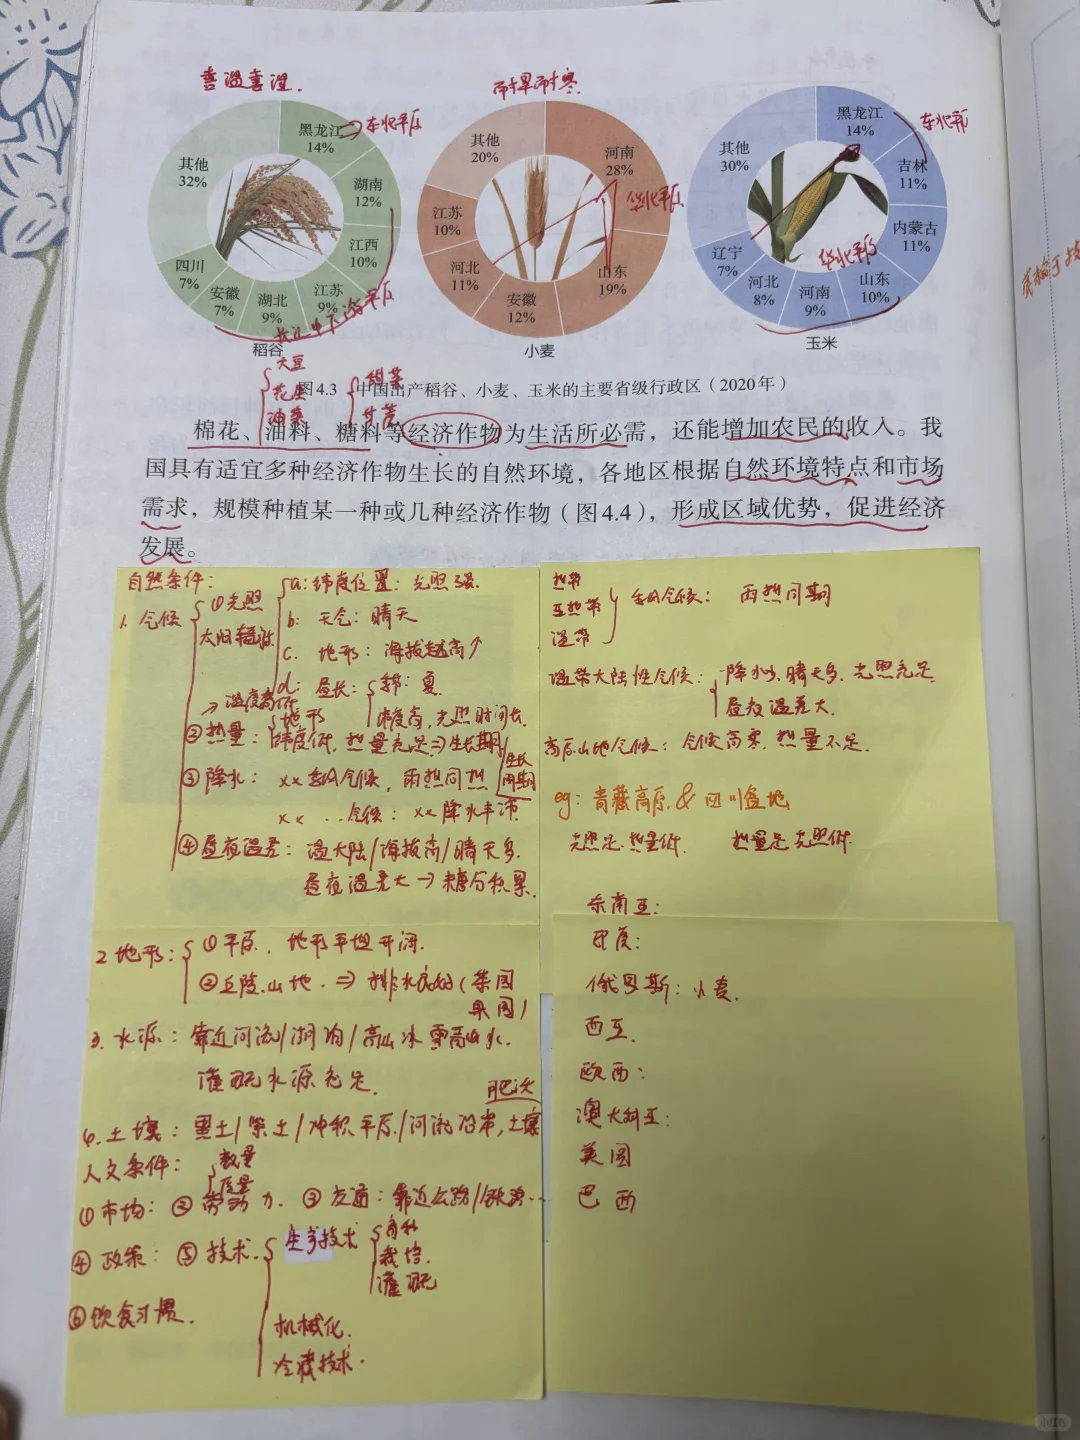 喜温喜湿.
耐旱耐寒.
黑龙江
14%
东北平原
湖南
12%
江西
10%
江苏
9%
湖北
9%
安徽
7%
四川
7%
其他
32%
长江中下游平原
稻谷
河南
28%
华北平原
山东
19%
安徽
12%
河北
11%
江苏
10%
其他
20%
小麦
黑龙江
14%
东北平原
吉林
11%
内蒙古
11%
山东
10%
河南
9%
河北
8%
辽宁
7%
其他
30%
华北平原
玉米
大豆
花生
油菜
甜菜
甘蔗
图4.3 中国出产稻谷、小麦、玉米的主要省级行政区（2020年）
棉花、油料、糖料等经济作物为生活所必需，还能增加农民的收入。我
国具有适宜多种经济作物生长的自然环境，各地区根据自然环境特点和市场
需求，规模种植某一种或几种经济作物（图4.4），形成区域优势，促进经济
发展。
自然条件：
1. 气候
①光照
太阳辐射
a: 纬度位置：光照强.
b: 天气：晴天
c. 地形：海拔越高↑
d: 昼长：
季节：夏.
纬度高，光照时间长.
→温度高低
②热量：
地形
纬度低，热量充足⇒生长期
生长
周期
③降水：××季风气候，雨热同期
××...气候：××降水丰沛.
④昼夜温差：温大陆/海拔高/晴天多.
昼夜温差大→糖分积累.
2 地形：
①平原.，地形平坦开阔.
②丘陵.山地.⇒排水良好(茶园
果园)
3. 水源：靠近河流/湖泊/高山冰雪融水.
灌溉水源充足.
肥沃
4. 土壤：黑土/紫土/冲积平原/河流沿岸，土壤
人文条件：
数量
质量
①市场：②劳动力. ③交通：靠近公路/铁路...
④政策：⑤技术.
生产技术
育种
栽培.
灌溉
机械化.
冷藏技术.
⑥饮食习惯.
热带
亚热带
温带
季风气候：雨热同期
温带大陆性气候：
降水少，晴天多，光照充足
昼夜温差大.
高原山地气候：气候高寒，热量不足.
eg: 青藏高原 & 四川盆地
光照足.热量低. 热量足 光照低.
东南亚：
印度：
俄罗斯：小麦.
西亚.
欧西：
澳大利亚：
美国
巴西
小红书